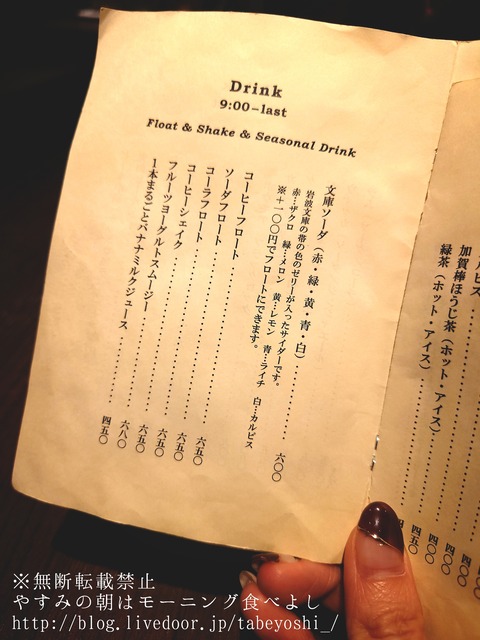 Drink
9:00–last
Float & Shake & Seasonal Drink
文庫ソーダ（赤・緑・黄・青・白）……………六〇〇
岩波文庫の帯の色のゼリーが入ったサイダーです。
赤…ザクロ 緑…メロン 黄…レモン 青…ライチ 白…カルピス
※＋一〇〇円でフロートにできます。
コーヒーフロート……………六五〇
ソーダフロート……………六五〇
コーラフロート……………六五〇
コーヒーシェイク……………六五〇
フルーツヨーグルトスムージー……………六八〇
1本まるごとバナナミルクジュース……………四五〇
ルピス
加賀棒ほうじ茶（ホット・アイス）……………四五〇
緑茶（ホット・アイス）……………四
※無断転載禁止
やすみの朝はモーニング食べよし
http://blog.livedoor.jp/tabeyoshi_/